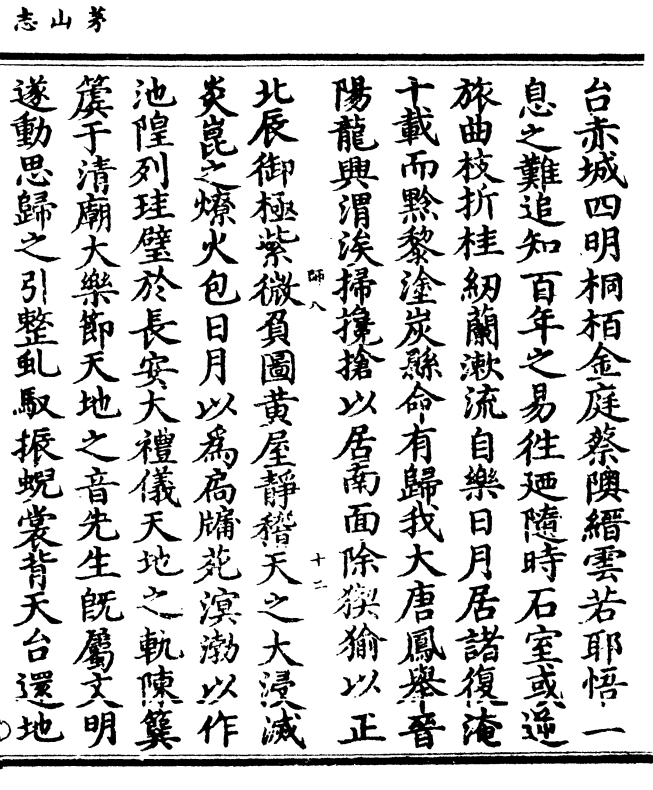 茅山志
台赤城四明桐栢金庭蔡隩縉雲若耶悟一
息之難追知百年之易徃廼隨時石室或逆
旅曲枝折桂紉蘭漱流自樂日月居諸復淹
十載而黔黎塗炭縣命有歸我大唐鳳舉晉
陽龍興渭涘掃攙搶以居南面除猰㺄以正
師八
十二
北辰御極紫微負圖黄屋靜稽天之大浸滅
炎崑之燎火包日月以爲扄牖苑溟渤以作
池隍列珪璧於長安大禮儀天地之軌陳簨
簴于清廟大樂節天地之音先生旣屬文明
遂動思歸之引整虬馭振蜺裳背天台還地